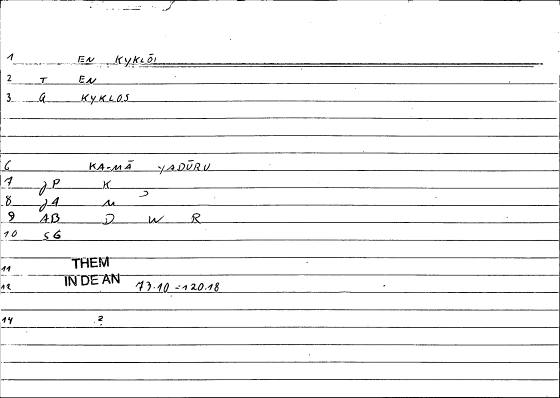 1 EN KYKLŌI
2 T EN
3 G KYKLOS
6 KA-MĀ YADŪRU
7 JP K
8 J4
9 AB D W R
10 SG
11 THEM
12 IN DE AN 73.10 = 120.18
14 ?